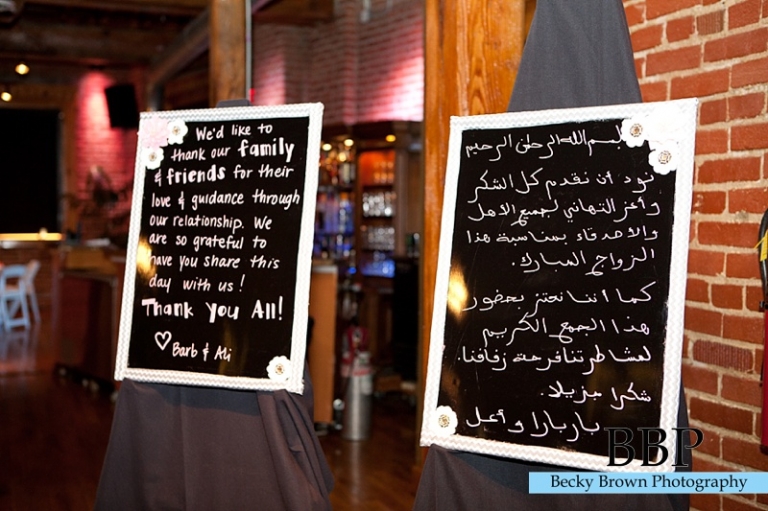 We'd like to
thank our family
& friends for their
love & guidance through
our relationship. We
are so grateful to
have you share this
day with us!
Thank You All!
Barb & Ali
بسم الله الرحمن الرحيم
نود أن نقدم كل الشكر
وأعز التهاني لجميع الاهل
والاصدقاء بمناسبة هذا
الزواج المبارك.
كما أننا نعتز بحضور
هذا الجمع الكريم
لمشاطرتنا فرحة زفافنا.
شكرا جزيلا.
باربارا و
BBP
Becky Brown Photography